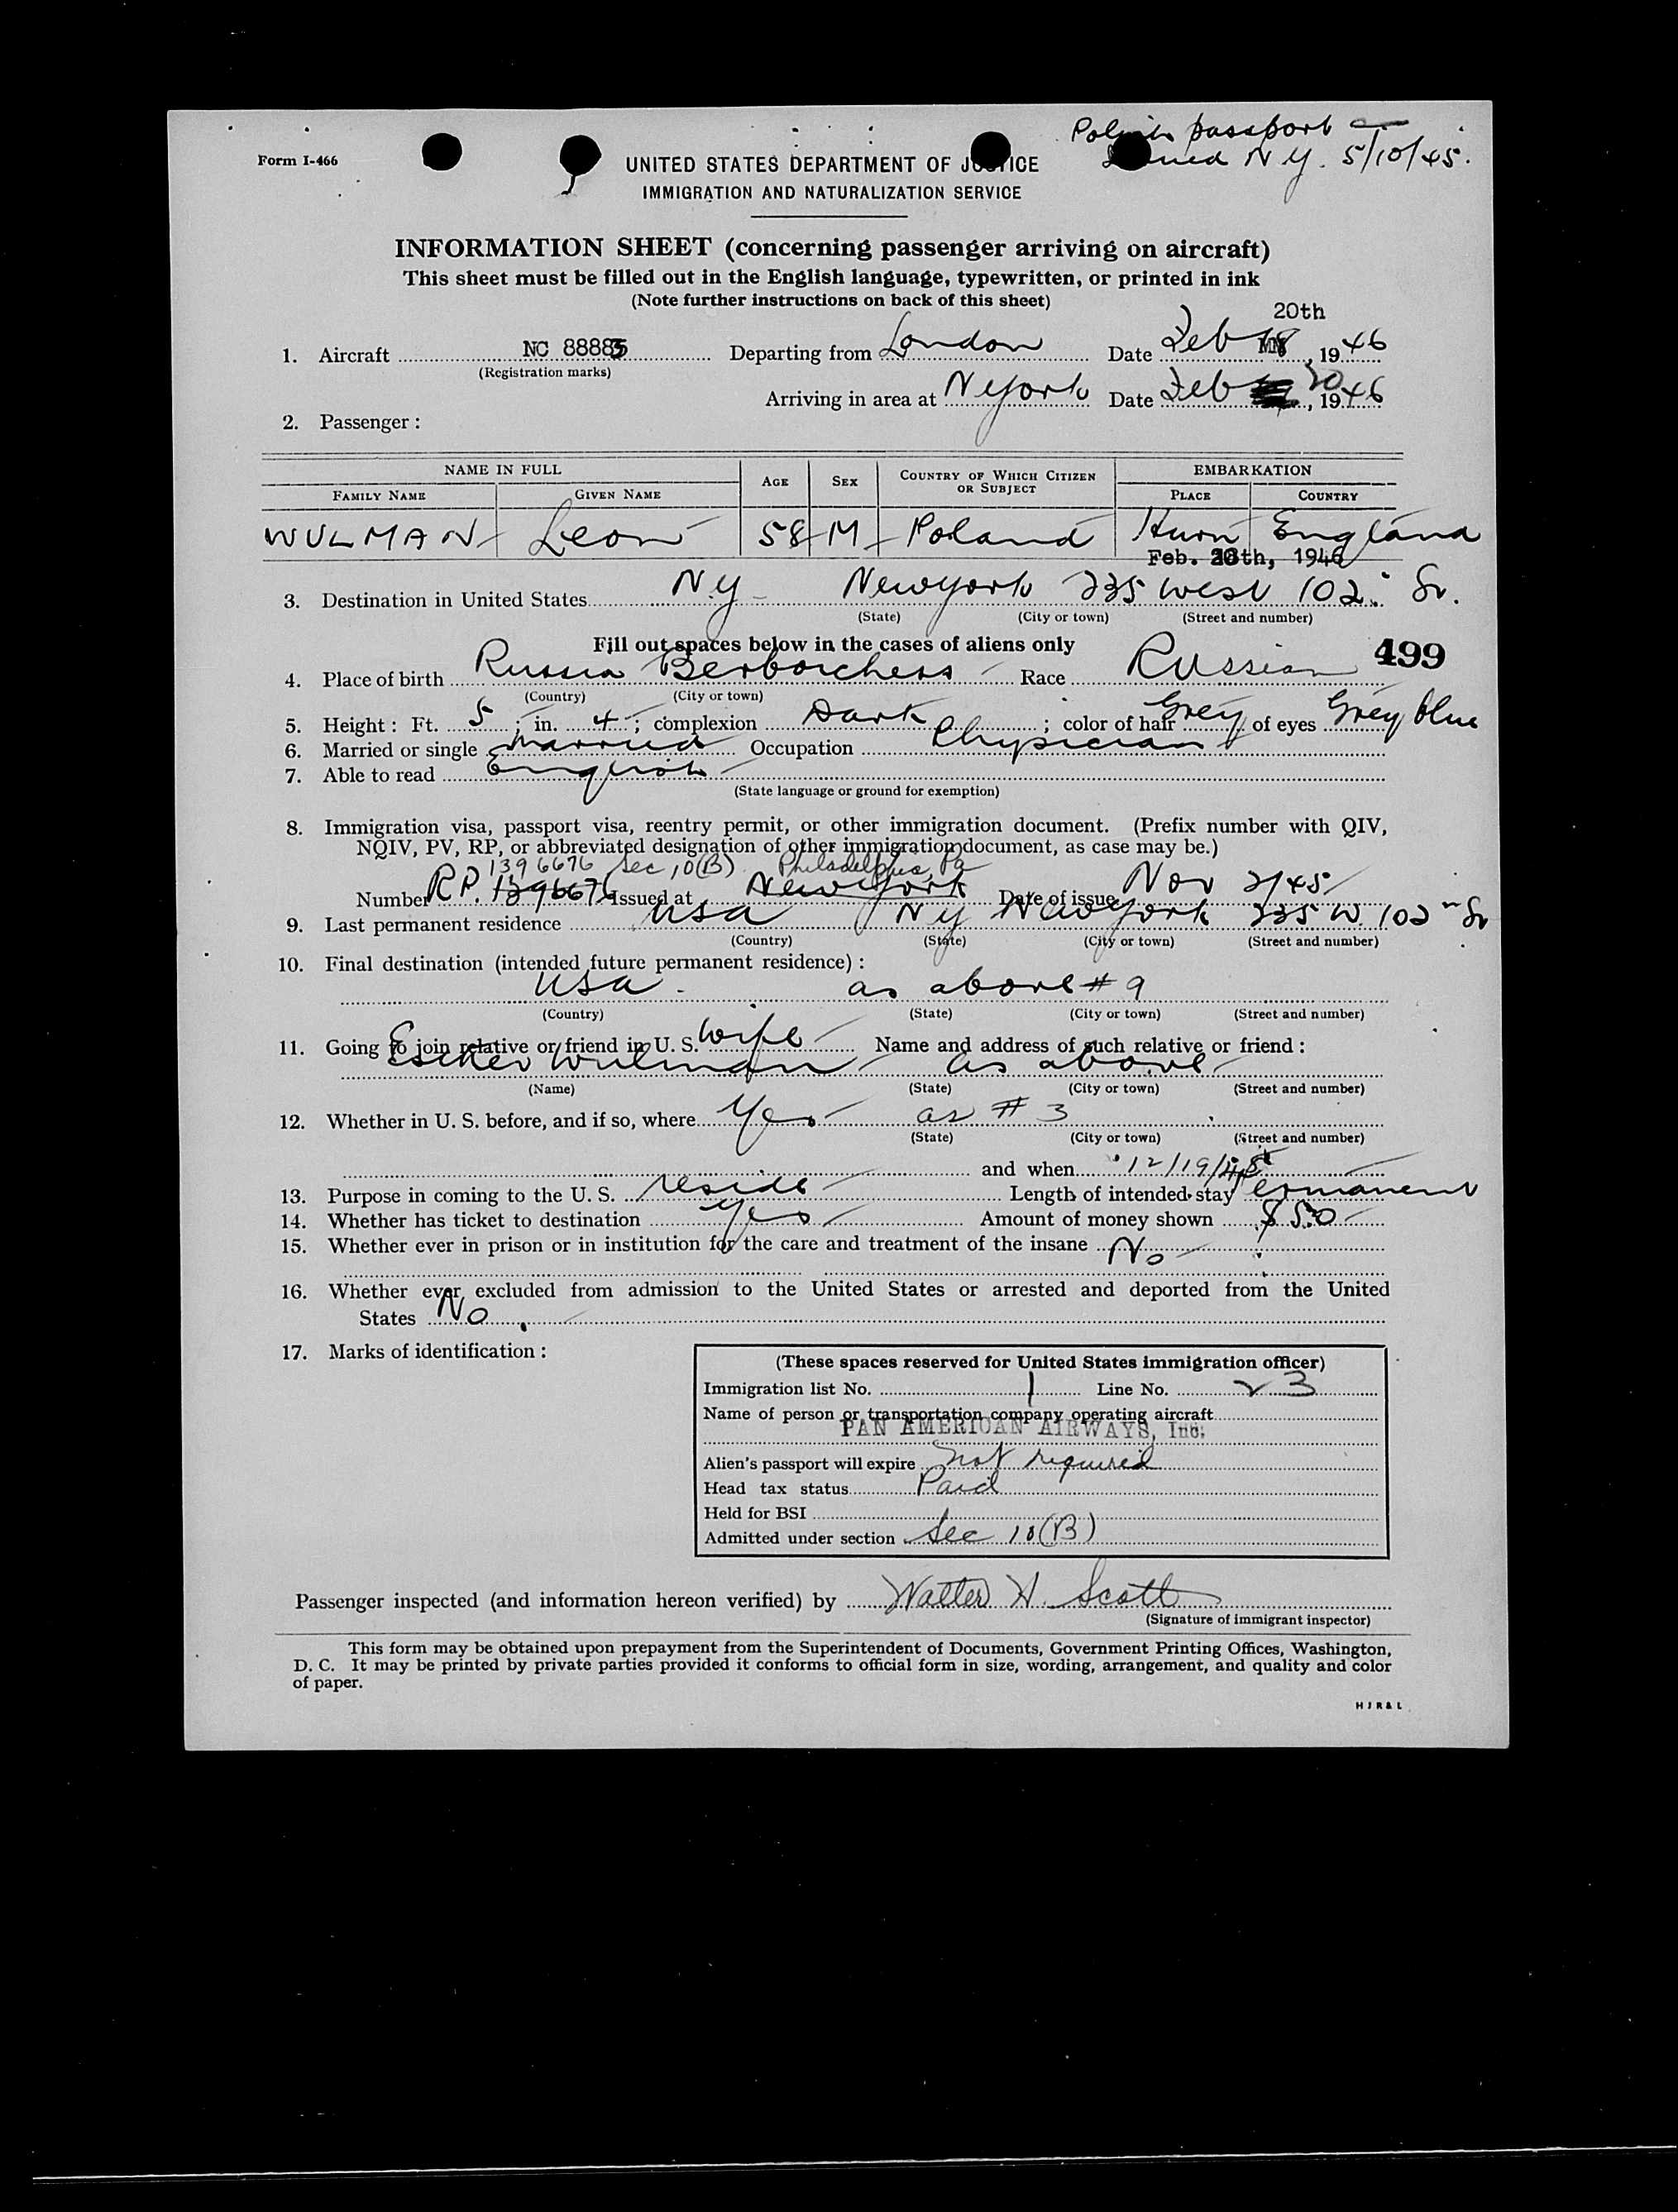 Polish passport
Issued N.Y. 5/10/45.
Form I-466
UNITED STATES DEPARTMENT OF JUSTICE
IMMIGRATION AND NATURALIZATION SERVICE
INFORMATION SHEET (concerning passenger arriving on aircraft)
This sheet must be filled out in the English language, typewritten, or printed in ink
(Note further instructions on back of this sheet)
20th
1. Aircraft NC 88885 Departing from London Date Feb 18, 1946
(Registration marks)
Arriving in area at N York Date Feb 20, 1946
2. Passenger:
NAME IN FULL AGE SEX COUNTRY OF WHICH CITIZEN OR SUBJECT EMBARKATION
FAMILY NAME GIVEN NAME PLACE COUNTRY
WULMAN Leon 58 M Poland Hurn England
Feb. 20th, 1946
3. Destination in United States N.Y Newyork 235 West 102. St.
(State) (City or town) (Street and number)
Fill out spaces below in the cases of aliens only
499
4. Place of birth Russia Race Russian
(Country) (City or town)
5. Height: Ft. 5; in. 4; complexion Dark; color of hair Grey of eyes Grey blue
6. Married or single Married Occupation Physician
7. Able to read English
(State language or ground for exemption)
8. Immigration visa, passport visa, reentry permit, or other immigration document. (Prefix number with QIV,
NQIV, PV, RP, or abbreviated designation of other immigration document, as case may be.)
1396676 Sec 10(B) Philadelphia, Pa
Number RP. 1396676 Issued at New York Date of issue Nov 2/45
9. Last permanent residence USA NY Newyork 235 W. 102" St
(Country) (State) (City or town) (Street and number)
10. Final destination (intended future permanent residence):
USA. as above #9
(Country) (State) (City or town) (Street and number)
11. Going to join relative or friend in U. S. Wife Name and address of such relative or friend:
Esther Wulman as above
(Name) (State) (City or town) (Street and number)
12. Whether in U. S. before, and if so, where Yes as #3
(State) (City or town) (Street and number)
and when 12/19/45
13. Purpose in coming to the U. S. reside Length of intended stay Permanent
14. Whether has ticket to destination Yes Amount of money shown $50
15. Whether ever in prison or in institution for the care and treatment of the insane No
16. Whether ever excluded from admission to the United States or arrested and deported from the United
States No.
17. Marks of identification:
(These spaces reserved for United States immigration officer)
Immigration list No. 1 Line No. 23
Name of person or transportation company operating aircraft
PAN AMERICAN AIRWAYS, Inc.
Alien's passport will expire not required
Head tax status Paid
Held for BSI
Admitted under section Sec 10(B)
Passenger inspected (and information hereon verified) by Walter H. Scott
(Signature of immigrant inspector)
This form may be obtained upon prepayment from the Superintendent of Documents, Government Printing Offices, Washington,
D. C. It may be printed by private parties provided it conforms to official form in size, wording, arrangement, and quality and color
of paper.
HJR&L